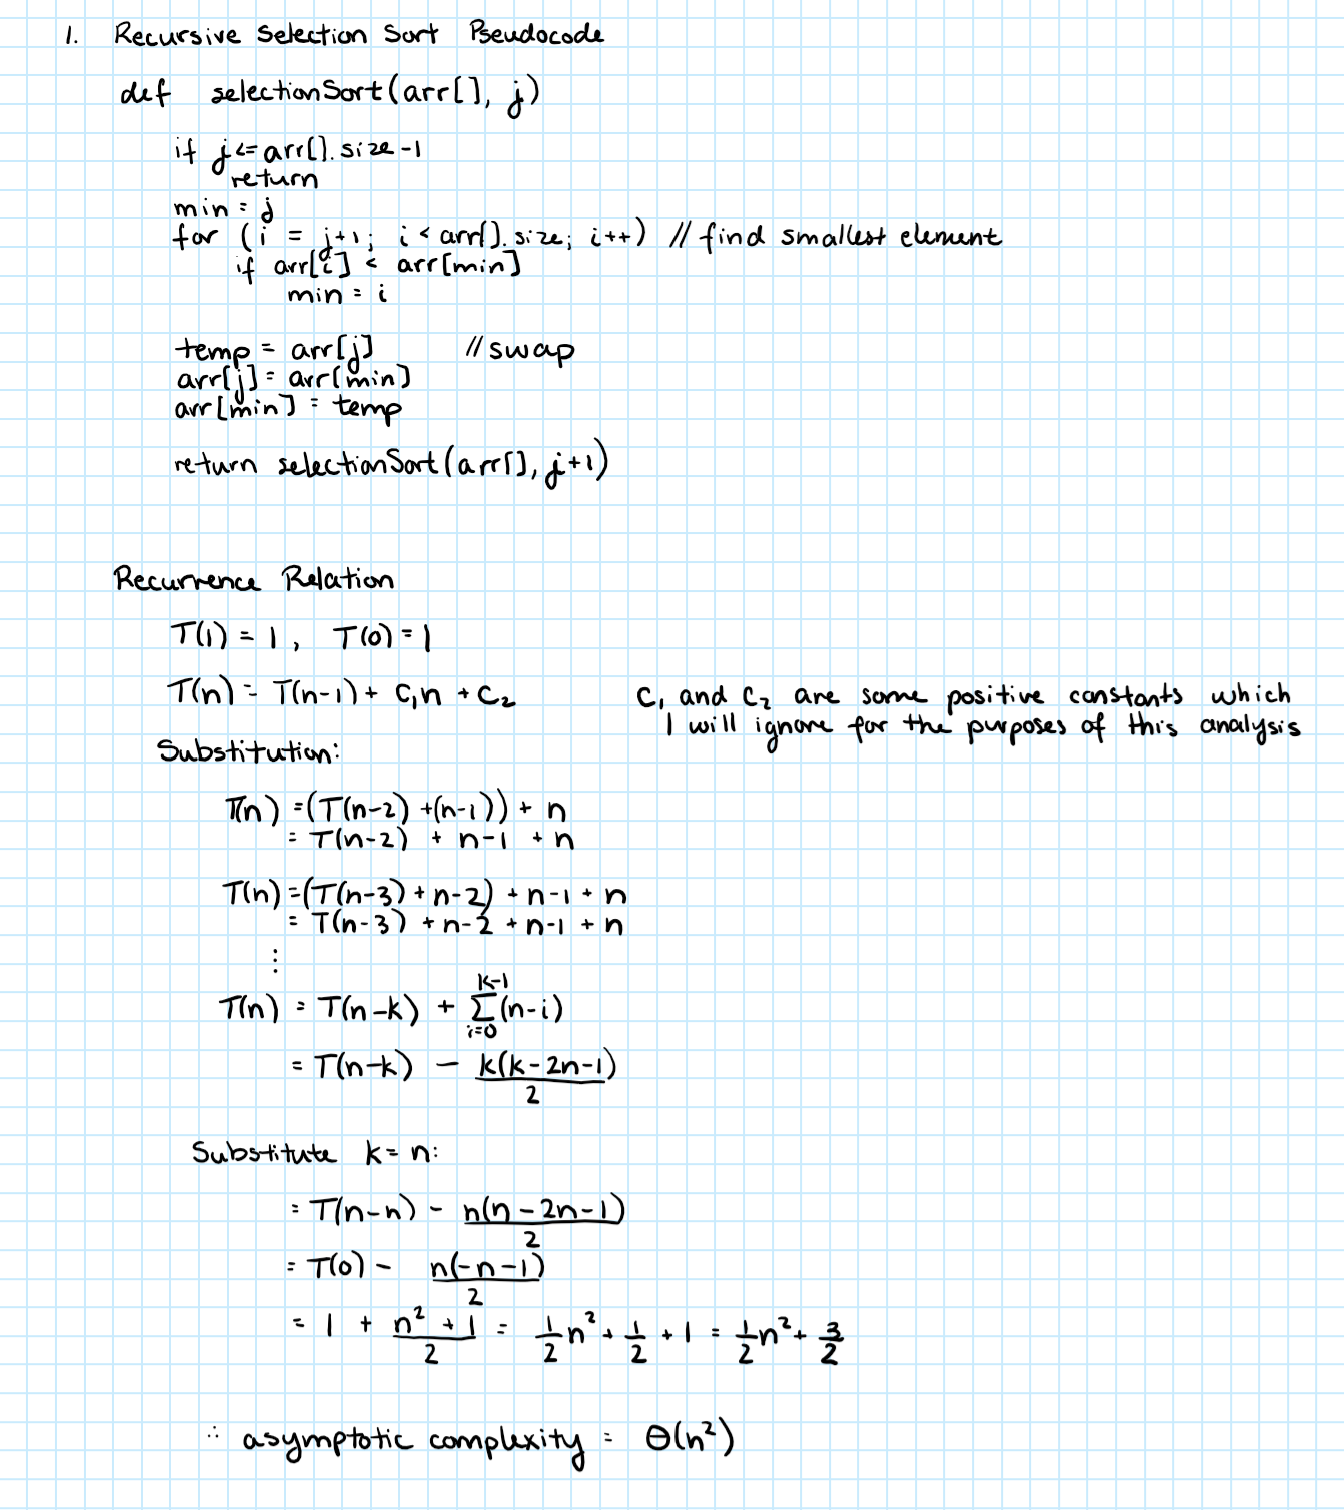 1. Recursive Selection Sort Pseudocode
def selectionSort(arr[], j)
if j <= arr[].size -1
return
min = j
for (i = j+1; i < arr[].size; i++) // find smallest element
if arr[i] < arr[min]
min = i
temp = arr[j] // swap
arr[j] = arr[min]
arr[min] = temp
return selectionSort(arr[], j+1)
Recurrence Relation
T(1) = 1, T(0) = 1
T(n) = T(n-1) + C₁n + C₂ C₁ and C₂ are some positive constants which
I will ignore for the purposes of this analysis
Substitution:
T(n) = (T(n-2) + (n-1)) + n
= T(n-2) + n-1 + n
T(n) = (T(n-3) + n-2) + n-1 + n
= T(n-3) + n-2 + n-1 + n
⋮
T(n) = T(n-k) + Σ_{i=0}^{k-1} (n-i)
= T(n-k) - k(k-2n-1)/2
Substitute k = n:
= T(n-n) - n(n-2n-1)/2
= T(0) - n(-n-1)/2
= 1 + (n² + 1)/2 = 1/2 n² + 1/2 + 1 = 1/2 n² + 3/2
∴ asymptotic complexity = Θ(n²)